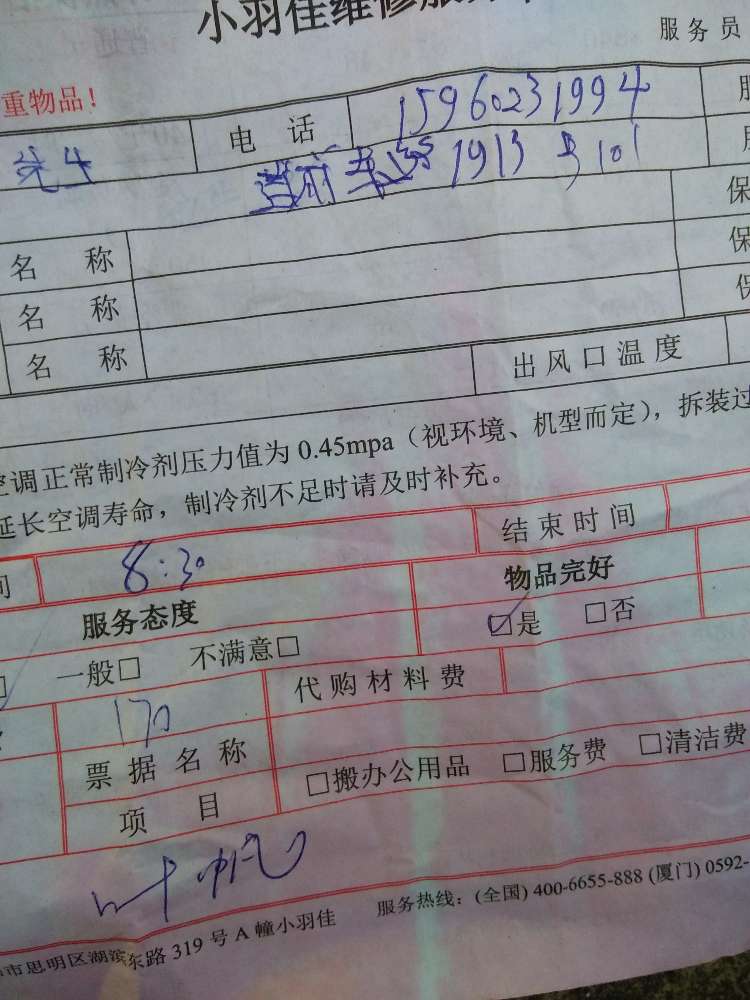 小羽佳维修服务单
服务员
重物品!
先生 电话 15960231994
1913号101
名称 保
名称 保
名称 保
出风口温度
空调正常制冷剂压力值为0.45mpa(视环境、机型而定),拆装过
延长空调寿命,制冷剂不足时请及时补充。
间 8:30 结束时间
服务态度 物品完好
一般□ 不满意□ ☑是 □否
170 代购材料费
票据名称
项目 □搬办公用品 □服务费 □清洁费
叶帆
市思明区湖滨东路319号A幢小羽佳 服务热线:(全国) 400-6655-888 (厦门) 0592-